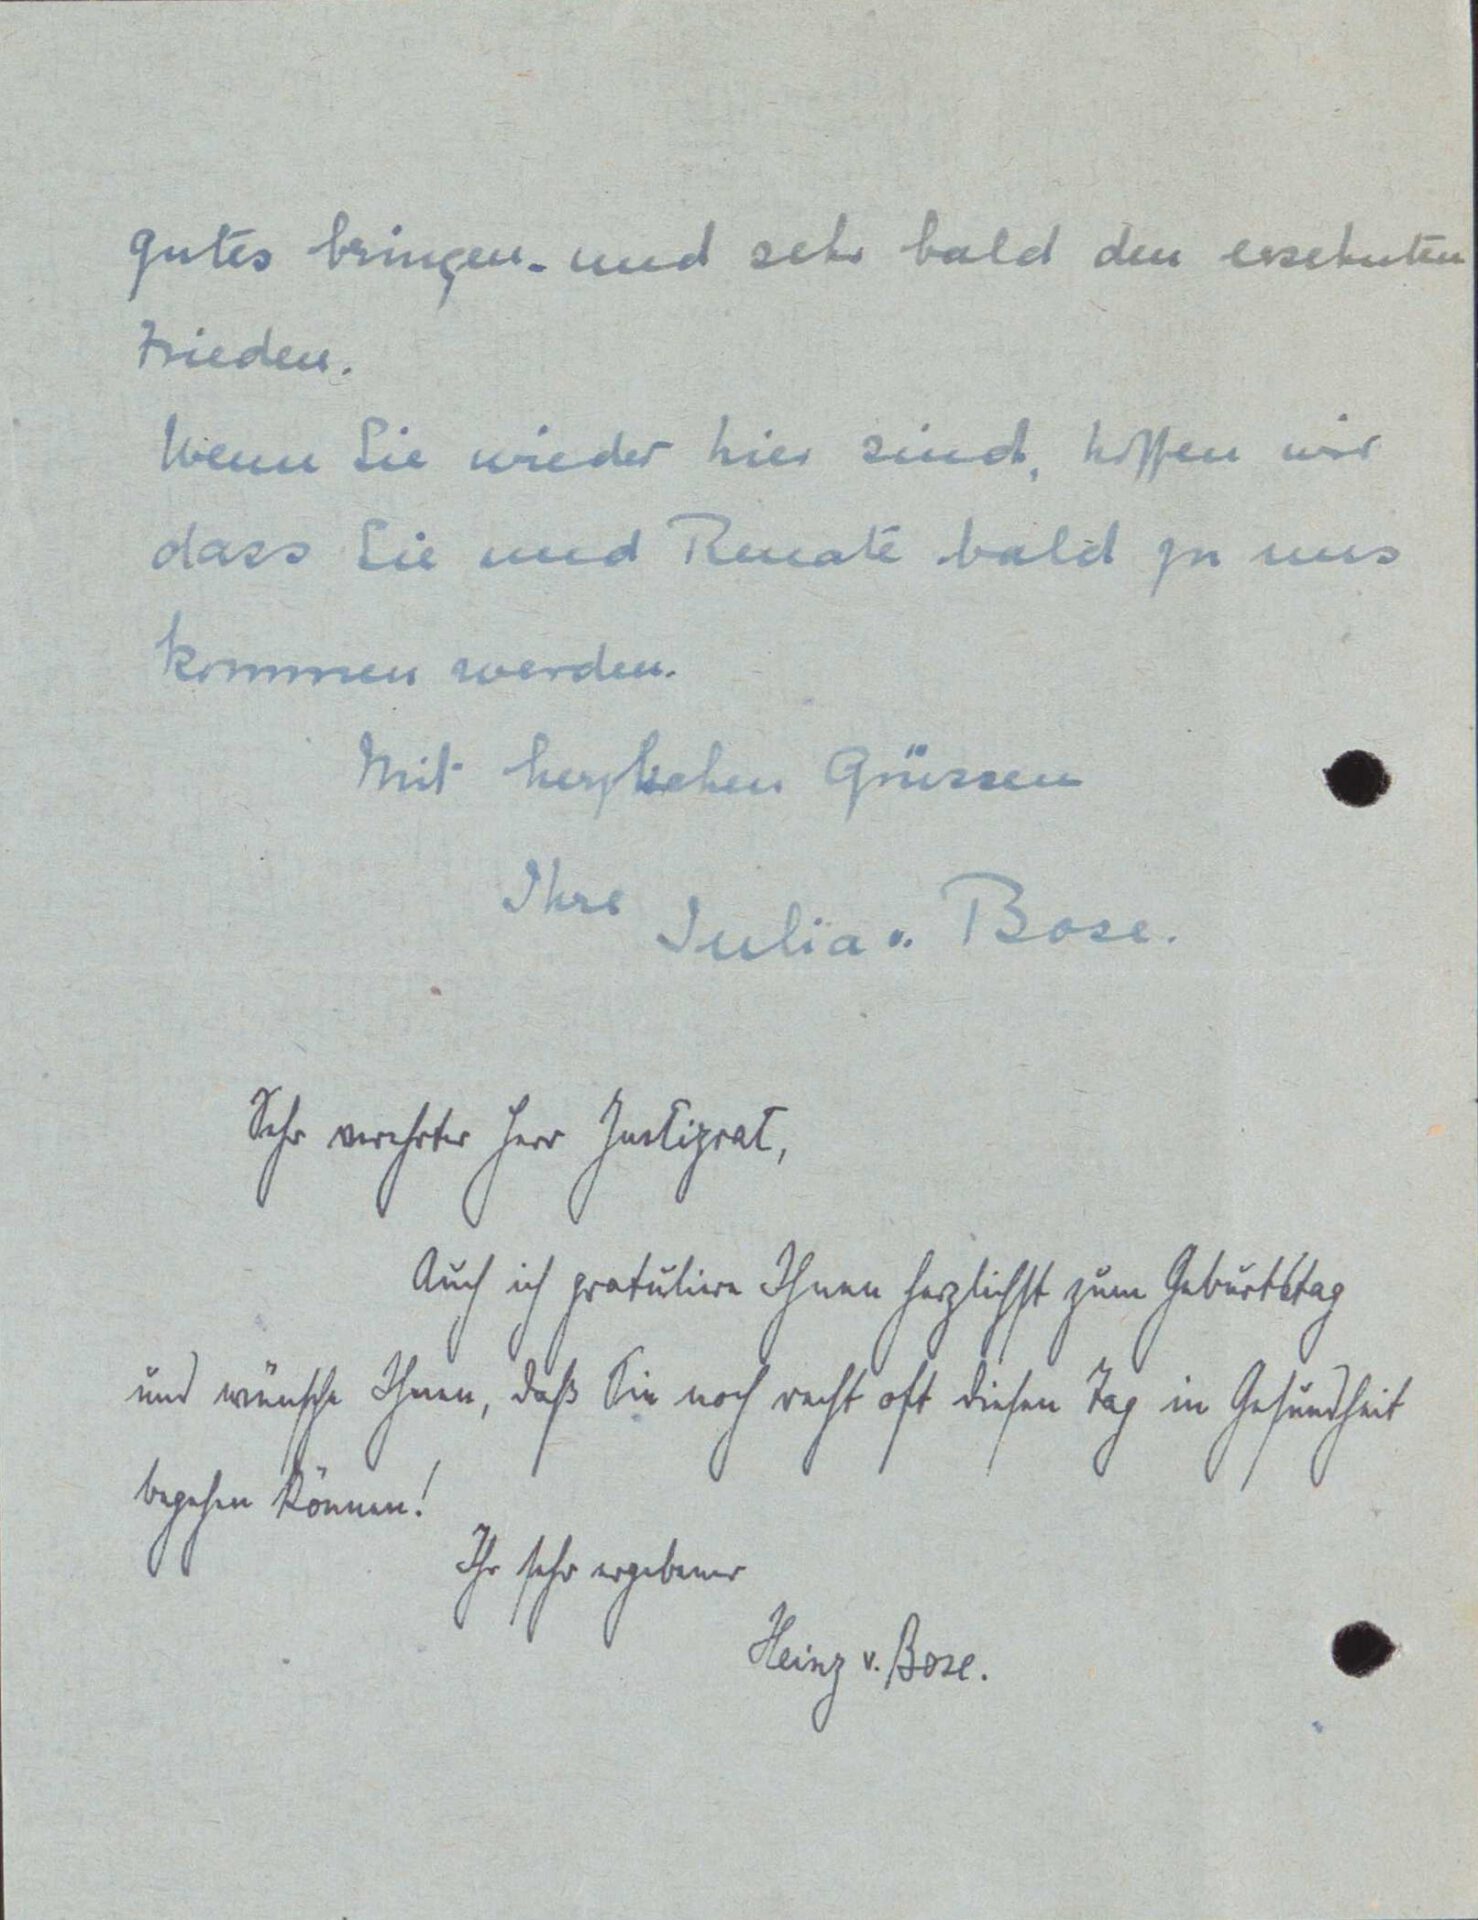 gutes bringen - und sehr bald den ersehnten
Frieden.
Wenn Sie wieder hier sind, hoffen wir
dass Sie und Renate bald zu uns
kommen werden.
Mit herzlichen Grüssen
Ihre Julia v. Bose.
Sehr verehrter Herr Justizrat,
Auch ich gratuliere Ihnen herzlichst zum Geburtstag
und wünsche Ihnen, daß Sie noch recht oft diesen Tag in Gesundheit
begehen können!
Ihr sehr ergebener
Heinz v. Bose.